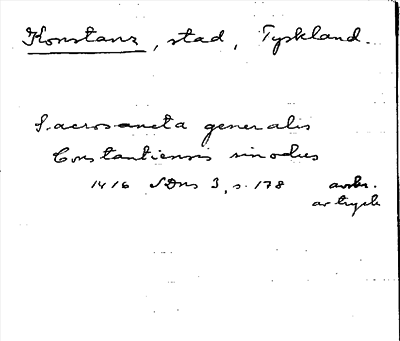 Konstanz, stad, Tyskland.
Sacrosancta generalis
Constantiensis sinodus
1416 SDns 3, s. 178 avskr.
av tryck